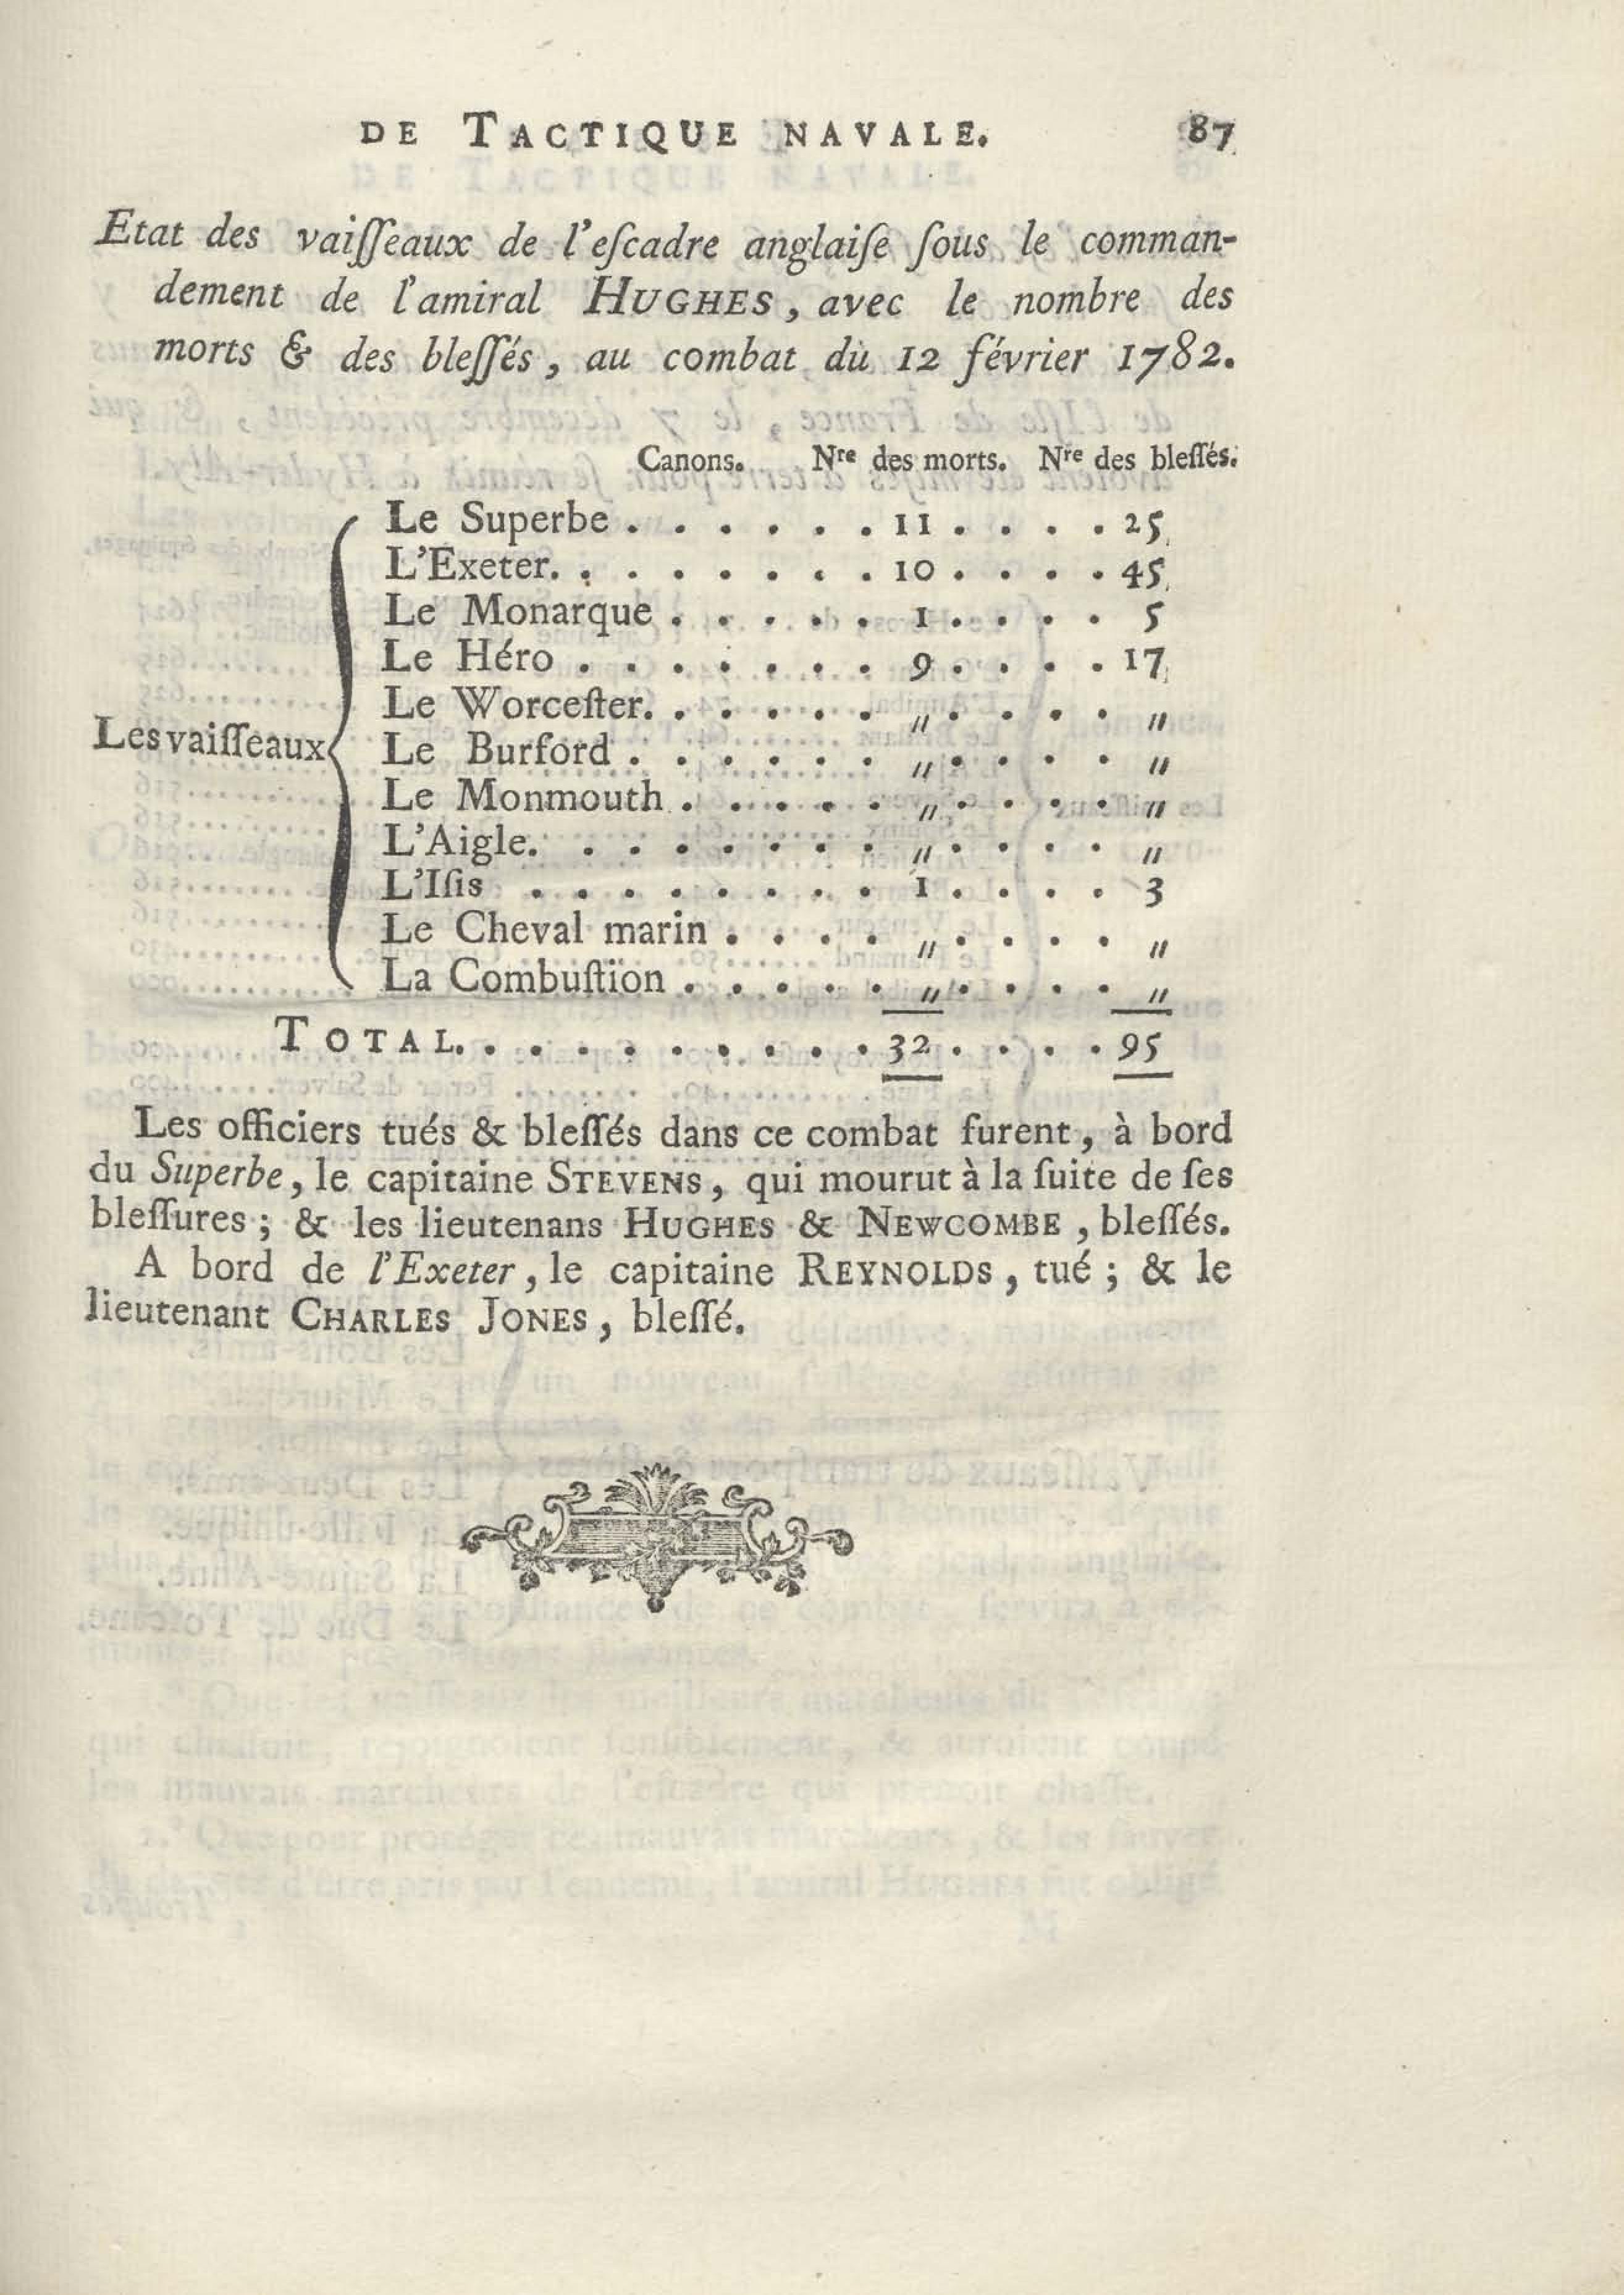 DE TACTIQUE NAVALE. 87
Etat des vaiſſeaux de l'eſcadre anglaiſe ſous le comman-
dement de l'amiral HUGHES, avec le nombre des
morts & des bleſſés, au combat du 12 février 1782.
Canons. Nre des morts. Nre des bleſſés.
Le Superbe . . . . . . 11 . . . . 25
L'Exeter. . . . . . . . 10 . . . . 45
Le Monarque . . . . . 1 . . . . 5
Le Héro . . . . . . . 9 . . . . 17
Le Worceſter. . . . . . " . . . . "
Les vaiſſeaux Le Burford . . . . . . " . . . . "
Le Monmouth . . . . . " . . . . "
L'Aigle. . . . . . . . " . . . . "
L'Iſis . . . . . . . . 1 . . . . 3
Le Cheval marin . . . . " . . . . "
La Combuſtïon . . . . . " . . . . "
TOTAL. . . . . . . . . . 32 . . . . 95
Les officiers tués & bleſſés dans ce combat furent, à bord
du Superbe, le capitaine STEVENS, qui mourut à la ſuite de ſes
bleſſures ; & les lieutenans HUGHES & NEWCOMBE, bleſſés.
A bord de l'Exeter, le capitaine REYNOLDS, tué ; & le
lieutenant CHARLES JONES, bleſſé.